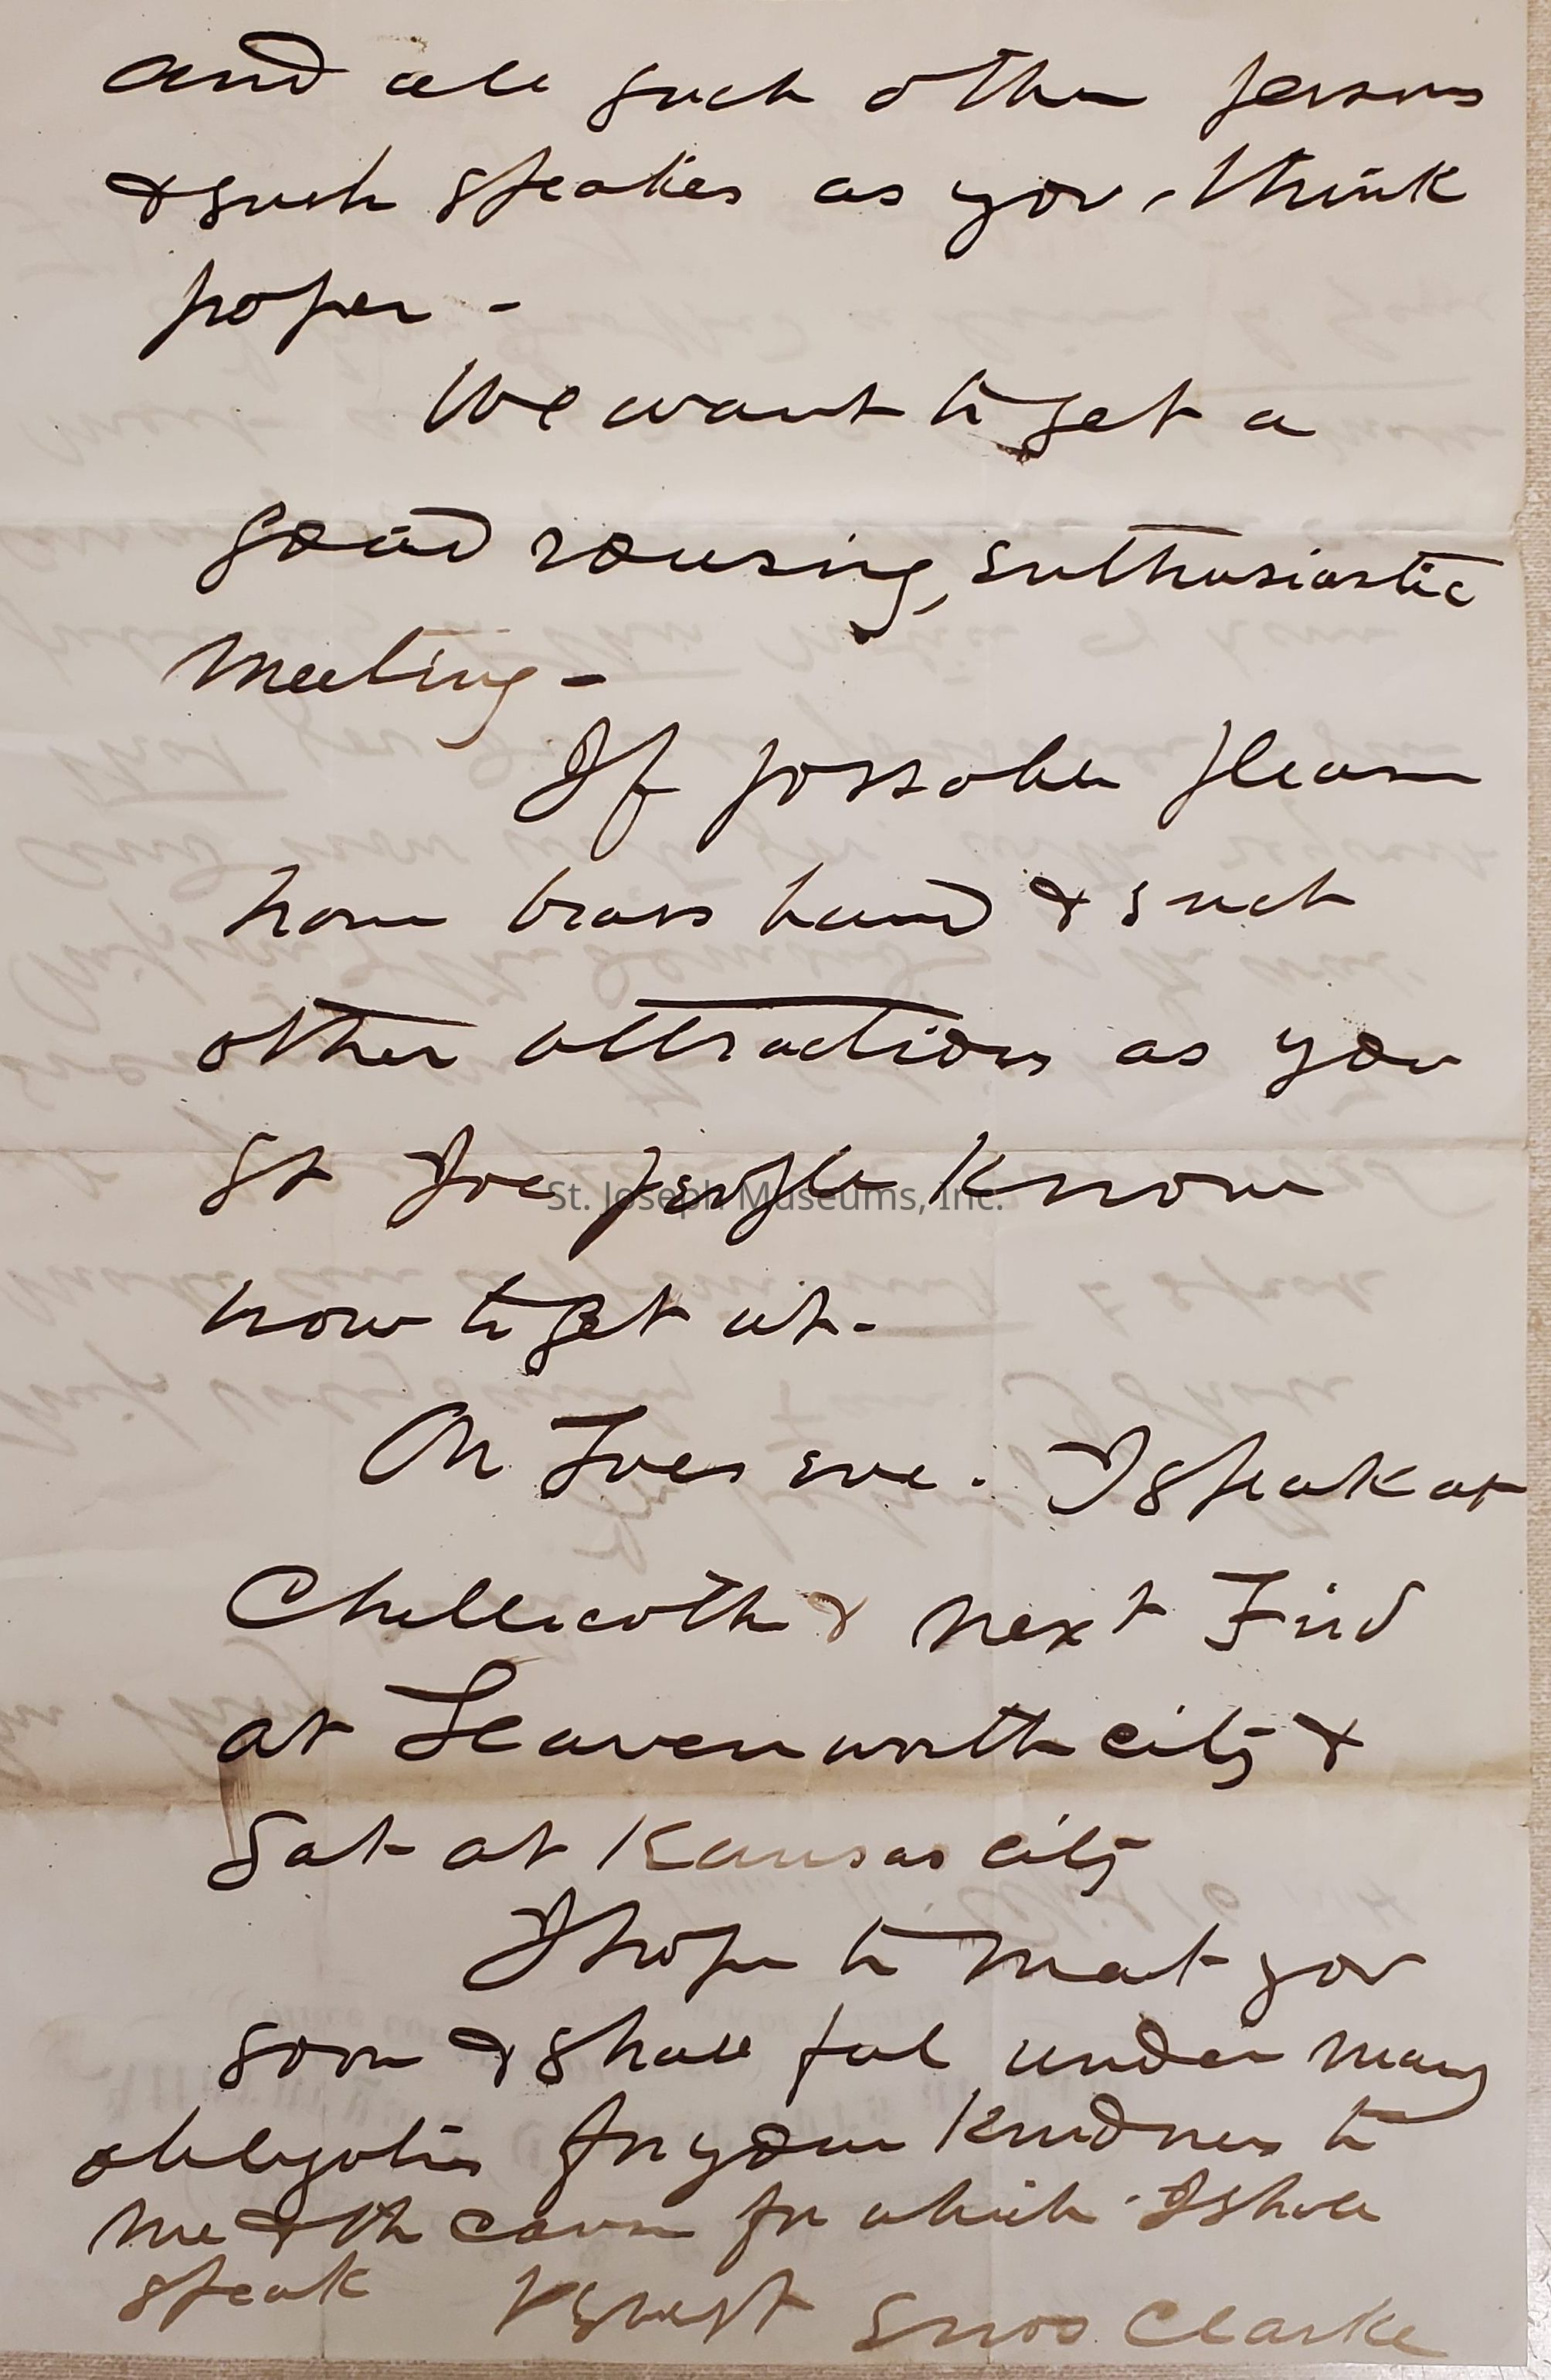 and all such other persons
& such speakers as you think
proper -
We want to get a
good rousing, enthusiastic
meeting -
If possible please
have brass band & such
other attractions as you
St Joe people know
how to get up -
On Tues eve. I speak at
Chillicothe & next Frid
at Leavenworth city &
Sat at Kansas city
I hope to meet you
soon & shall feel under many
obligations for your kindness to
me & the cause for which I shall
speak Enos Clarke
St. Joseph Museums, Inc.